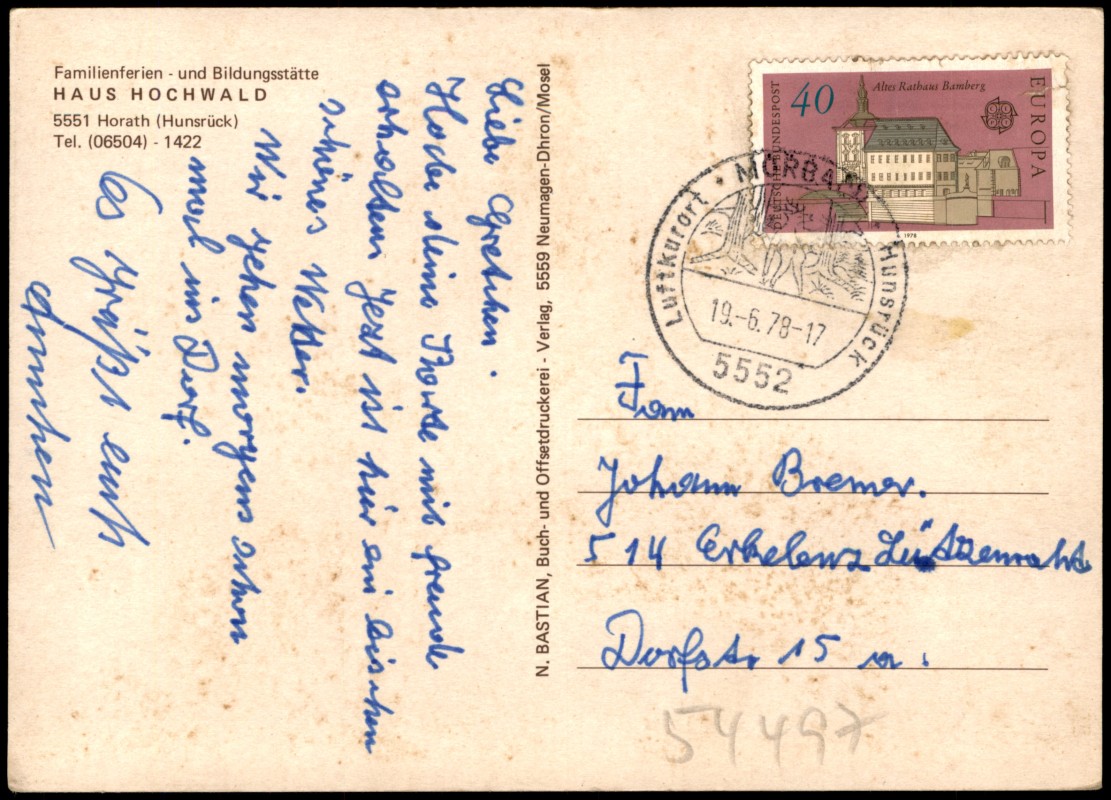 Familienferien - und Bildungsstätte
HAUS HOCHWALD
5551 Horath (Hunsrück)
Tel. (06504) - 1422
Liebe Gretchen.
Habe deine Karte mit freude
erhalten Jezt ist hir ein bischen
schönes Wetter.
Wir gehen morgens schon
mal ins Dorf.
Es grüßt euch
Annchen
N. BASTIAN, Buch- und Offsetdruckerei - Verlag, 5559 Neumagen-Dhron/Mosel
DEUTSCHE BUNDESPOST
40
Altes Rathaus Bamberg
EUROPA
1978
Luftkurort · MORBACH · Hunsrück
19.-6.78-17
5552
Fam
Johann Bremer.
514 Erkelenz Lützerath
Dorfstr 15 a.
54497